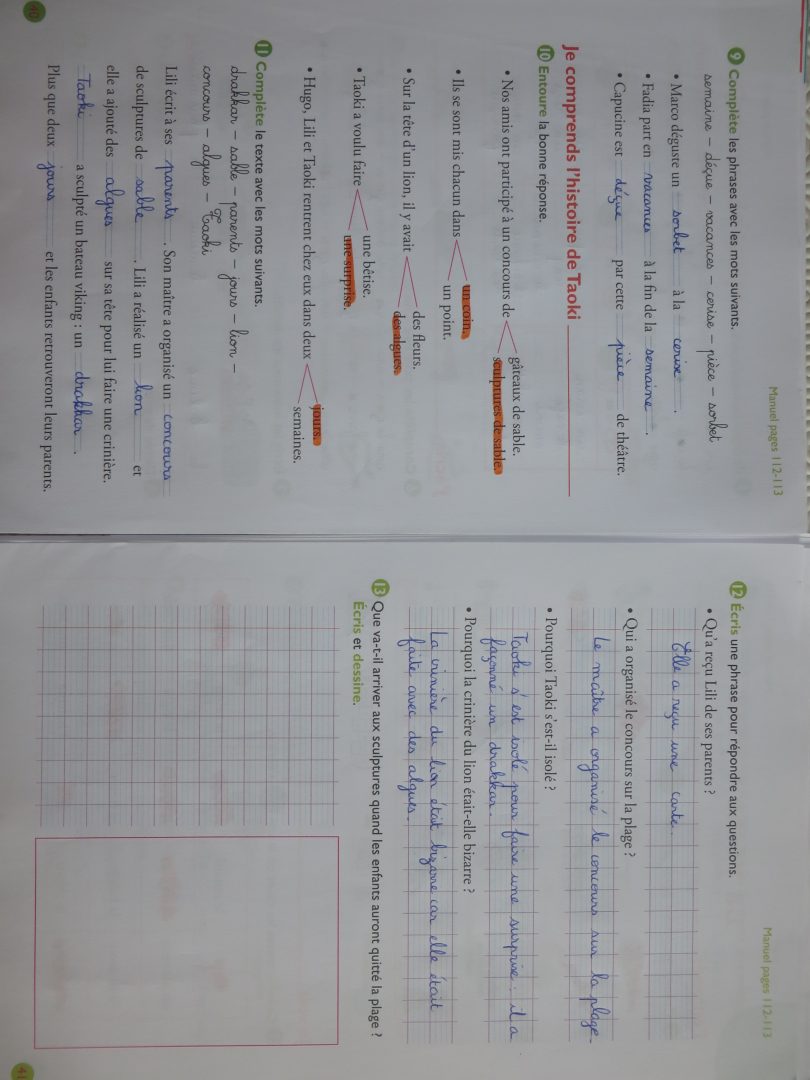 Manuel pages 112-113
9 Complète les phrases avec les mots suivants.
semaine – déçue – vacances – cerise – pièce – sorbet
• Marco déguste un sorbet à la cerise.
• Fadia part en vacances à la fin de la semaine.
• Capucine est déçue par cette pièce de théâtre.
Je comprends l'histoire de Taoki
10 Entoure la bonne réponse.
gâteaux de sable.
• Nos amis ont participé à un concours de
sculptures de sable.
un coin.
• Ils se sont mis chacun dans
un point.
des fleurs.
• Sur la tête d'un lion, il y avait
des algues.
une bêtise.
• Taoki a voulu faire
une surprise.
jours.
• Hugo, Lili et Taoki rentrent chez eux dans deux
semaines.
11 Complète le texte avec les mots suivants.
drakkar – sable – parents – jours – lion –
concours – algues – Taoki
Lili écrit à ses parents. Son maître a organisé un concours
de sculptures de sable. Lili a réalisé un lion et
elle a ajouté des algues sur sa tête pour lui faire une crinière.
Taoki a sculpté un bateau viking : un drakkar.
Plus que deux jours et les enfants retrouveront leurs parents.
40
Manuel pages 112-113
12 Écris une phrase pour répondre aux questions.
• Qu'a reçu Lili de ses parents ?
Elle a reçu une carte.
• Qui a organisé le concours sur la plage ?
Le maître a organisé le concours sur la plage.
• Pourquoi Taoki s'est-il isolé ?
Taoki s'est isolé pour faire une surprise : il a
façonné un drakkar.
• Pourquoi la crinière du lion était-elle bizarre ?
La crinière du lion était bizarre car elle était
faite avec des algues.
13 Que va-t-il arriver aux sculptures quand les enfants auront quitté la plage ?
Écris et dessine.
41